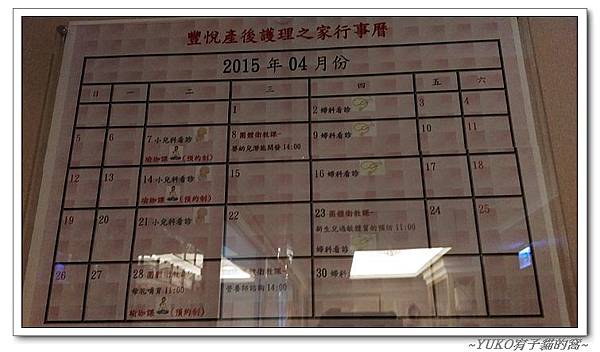 豐悅產後護理之家行事曆
2015 年 04 月份
日 一 二 三 四 五 六
1 2 婦科看診 3 4
5 6 7 小兒科看診 8 團體衛教課- 9 婦科看診 10 11
瑜珈課 (預約制) 嬰幼兒潛能開發 14:00
12 13 14 小兒科看診 15 16 婦科看診 17 18
瑜珈課 (預約制)
19 20 21 小兒科看診 22 23 團體衛教課- 24 25
新生兒過敏體質的預防 11:00
婦科看診
26 27 28 團體衛教 30 婦科
母乳哺育 11:00 營養師諮詢 14:00
瑜珈課 (預約制)
~YUKO宥子貓的窩~